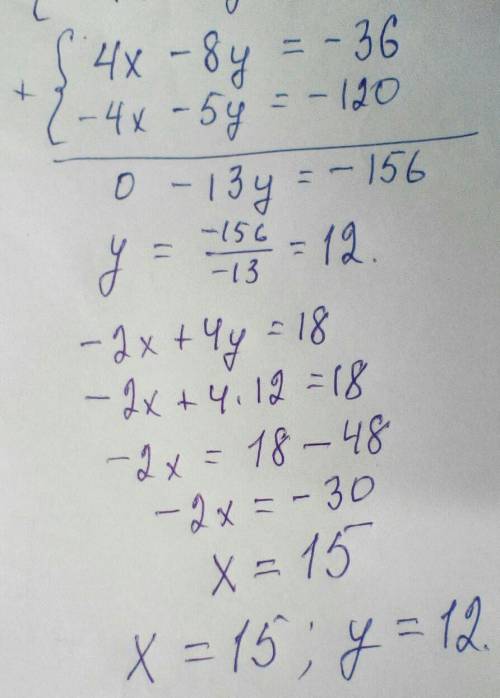 4x - 8y = -36
+ { -4x - 5y = -120
0 - 13y = -156
y = -156/-13 = 12.
-2x + 4y = 18
-2x + 4 · 12 = 18
-2x = 18 - 48
-2x = -30
x = 15
x = 15; y = 12.